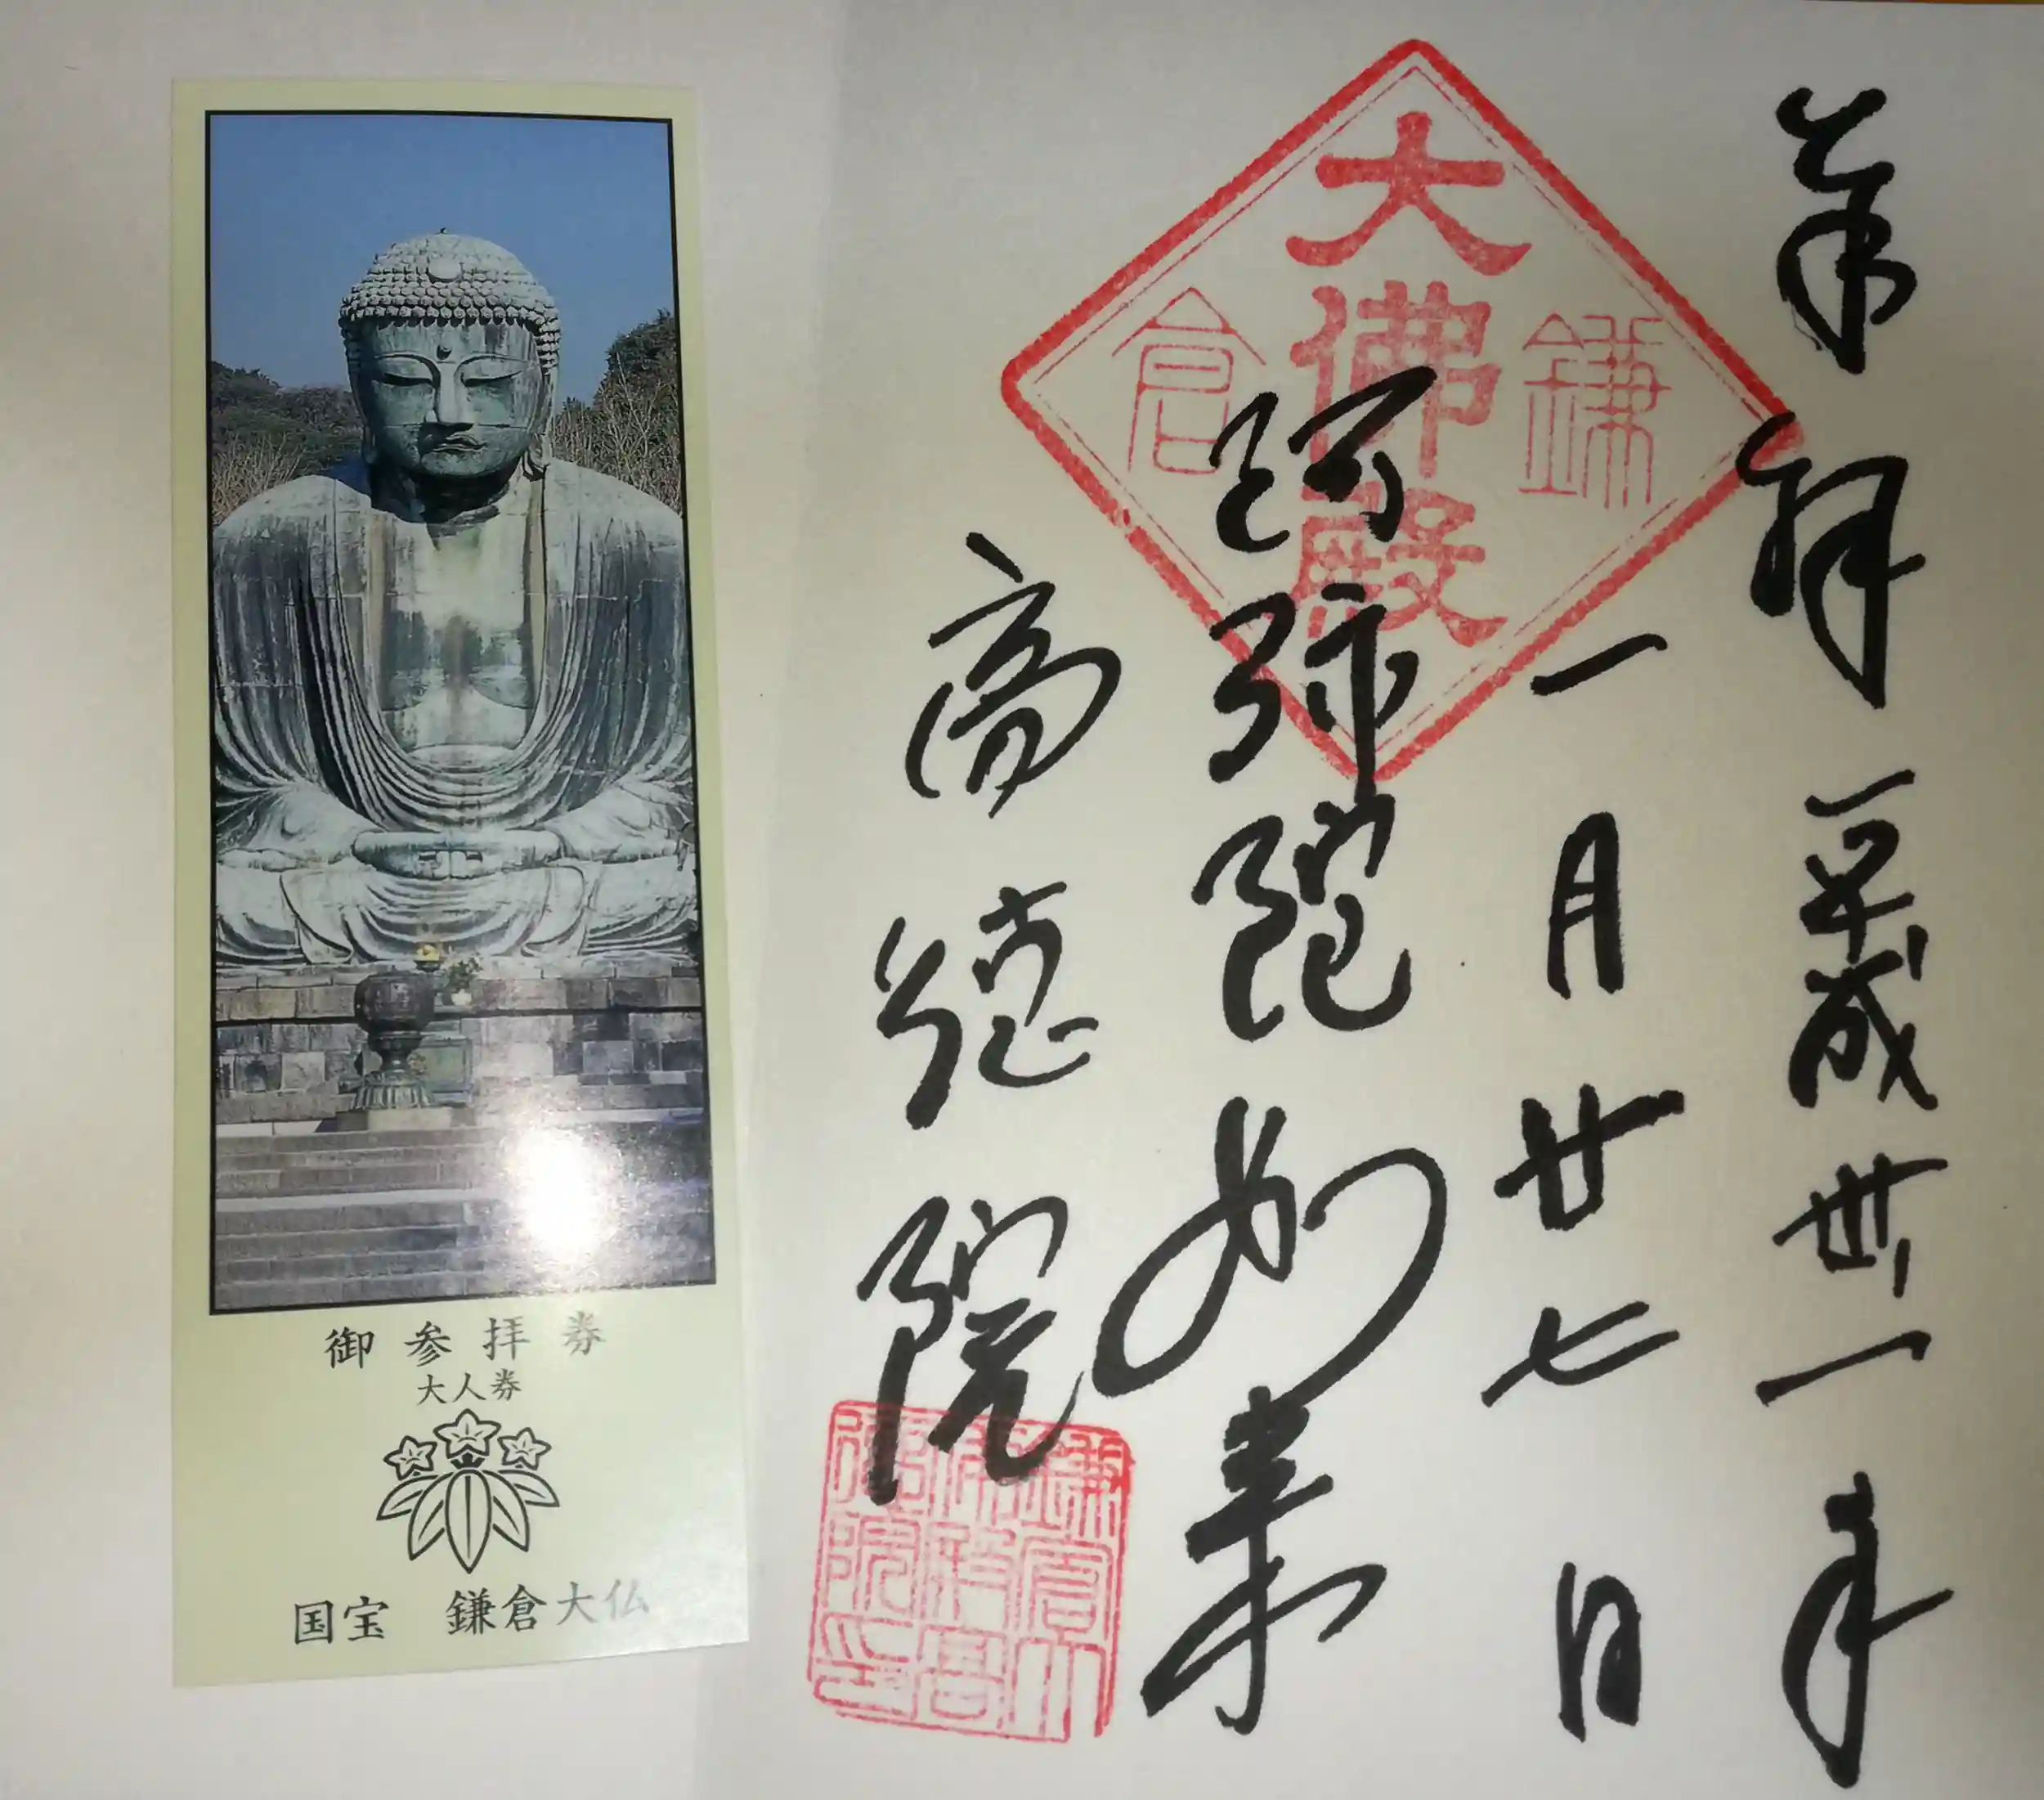 御参拝券
大人券
国宝 鎌倉大仏
奉拝 平成卅一年
一月廿七日
阿弥陀如来
高徳院
鎌倉
大佛殿